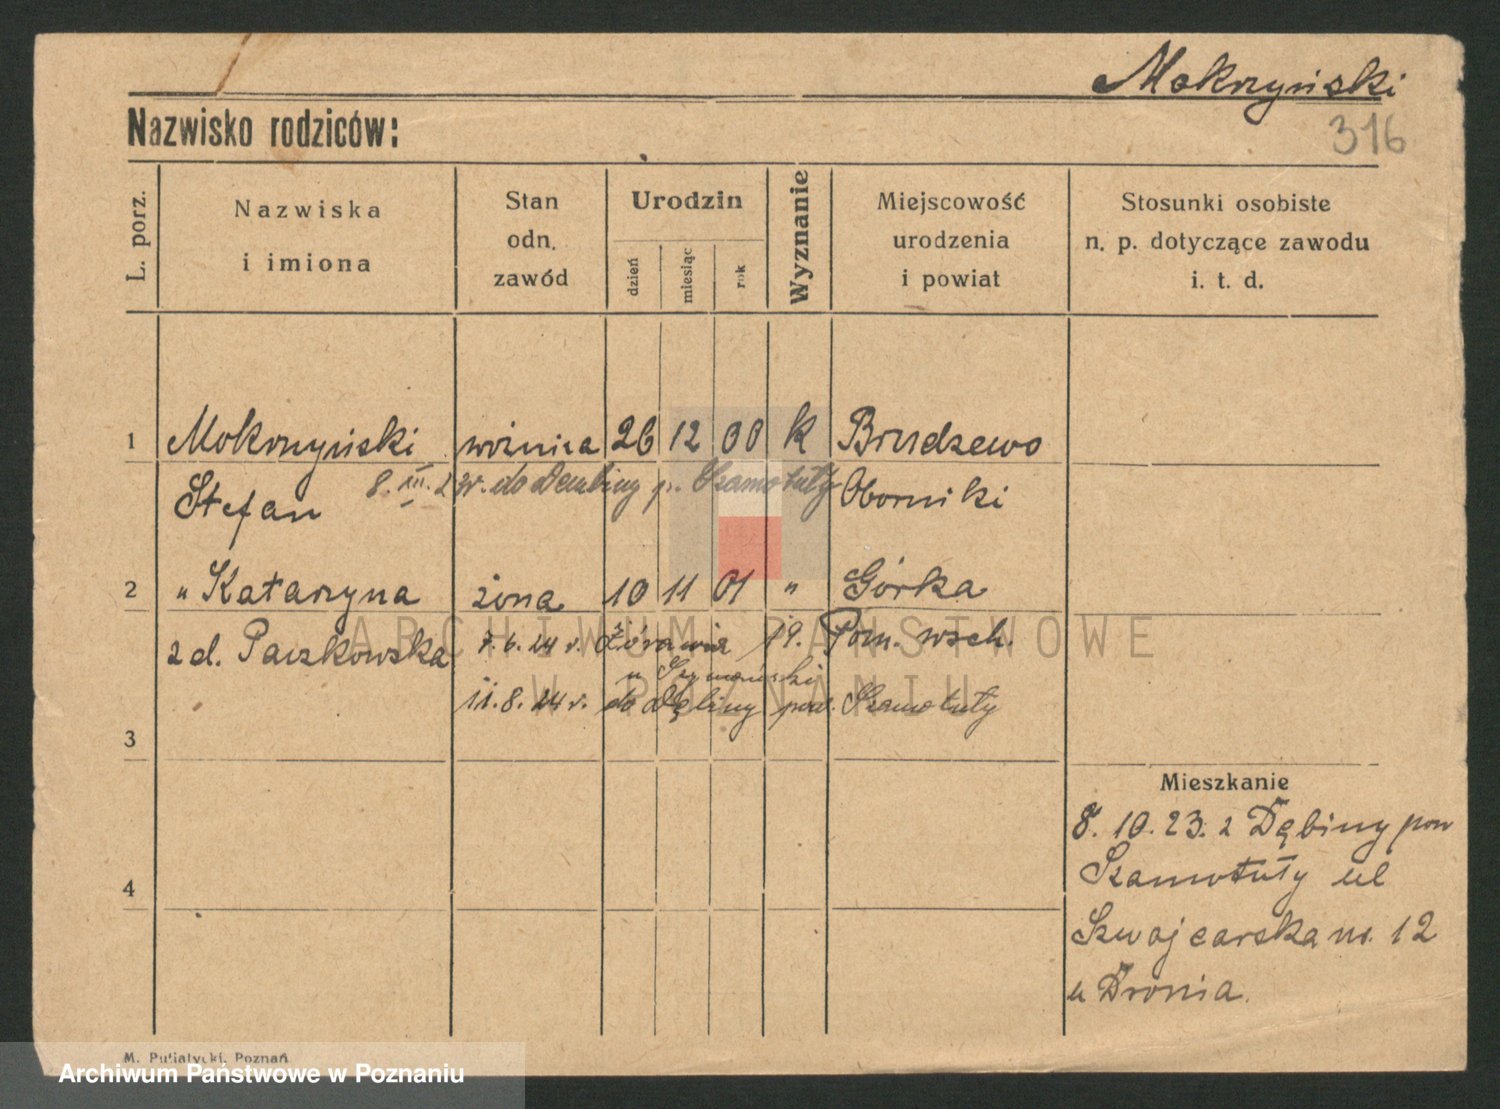 Mokrzyński
Nazwisko rodziców:
316
L. porz.
Nazwiska
i imiona
Stan
odn.
zawód
Urodzin
dzień
miesiąc
rok
Wyznanie
Miejscowość
urodzenia
i powiat
Stosunki osobiste
n. p. dotyczące zawodu
i. t. d.
1 Mokrzyński woźnica 26 12 00 k Brudzewo
Stefan 8. III. 2 do Dembiny p. Szamotuły Oborniki
2 " Katarzyna żona 10 11 01 " Górka
z d. Paczkowska 7.6.24 r. Żórawia 19. Pom. wsch.
u Szymański
11.8.24 r. do Dębiny pow. Szamotuły
3
Mieszkanie
8. 10. 23. z Dębiny pow
Szamotuły ul
4
Szwajcarska nr. 12
u Dronia.
M. Putiatycki, Poznań
ARCHIWUM PAŃSTWOWE
W POZNANIU
Archiwum Państwowe w Poznaniu